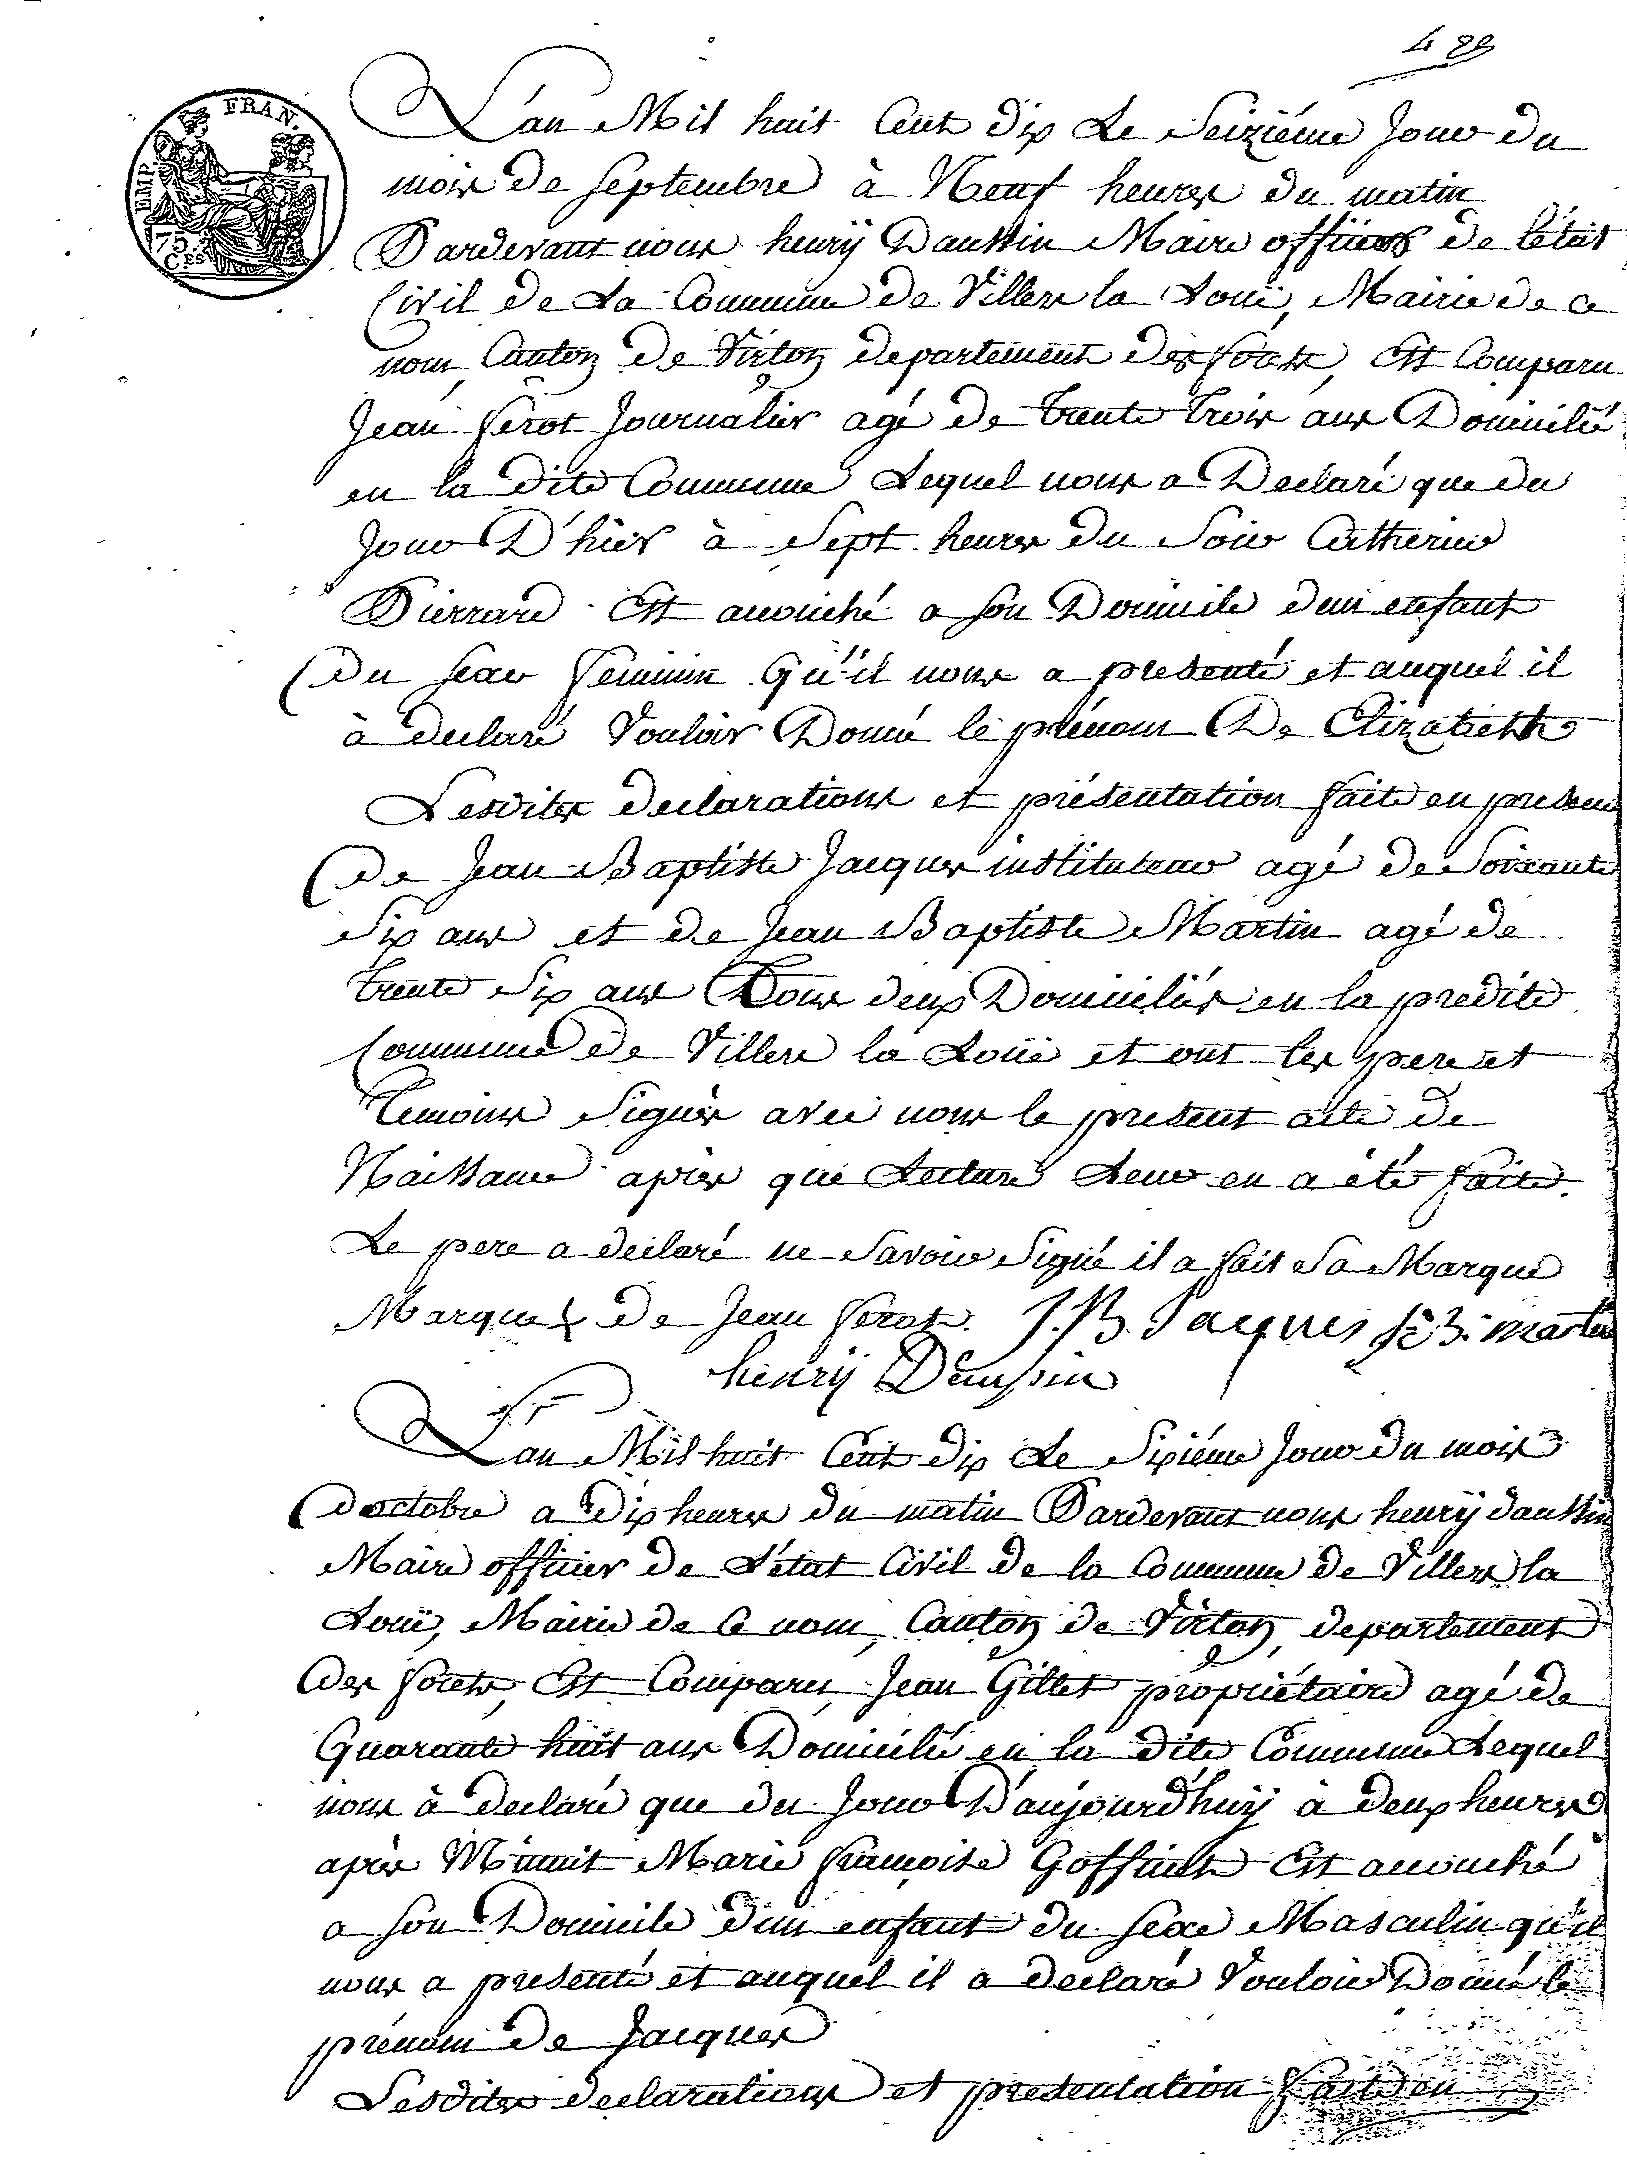 EMP. FRAN.
75.
Ces
L'an Mil huit Cent dix Le Seiziéme Jour du
mois de septembre à Neuf heures du matin
Pardevant nous henrÿ Daussin Maire officier de l'état
Civil de La Commune de Villers la Loüe, Mairie de ce
nom, Canton de Virton departement des forets, Est Comparu
Jean ferot Journalier agé de trente trois ans Domicilié
en la dite Commune Lequel nous a Declaré que du
Jour D'hier à Sept heures du Soir Catherine
Pierrard Est accouché a son Domicile d'un enfant
du sexe feminin qu'il nous a presenté et auquel il
à declaré Vouloir Donné le prénom De Elizabeth
Lesdites declarations et présentation faite en presence
de Jean Baptiste Jacques instituteur agé de Soixante
Six ans et de Jean Baptiste Martin agé de
trente Six ans Tous deux Domiciliés en la predite
Commune de Villers la Loüe et ont les pere et
Temoins Signés avec nous le present acte de
Naissance après que Lecture Leur en a été faite.
Le pere a declaré ne Savoir Signé il a fait Sa Marque
Marque X de Jean ferot. J.B. Jacques J B: martin
henrÿ Daussin
L'an Mil huit Cent dix Le Sixiéme Jour du mois
d'octobre a dix heures du matin Pardevant nous henrÿ daussin
Maire officier de L'état Civil de la Commune de Villers la
Loüe, Mairie de Ce nom, Canton de Virton, departement
des forets, Est Comparu, Jean Gillet propriétaire agé de
Quarante huit ans Domicilié en la dite Commune Lequel
nous à declaré que du Jour D'aujourd'huÿ à deux heures
après Minuit Marie françoise Goffinet Est accouché
a son Domicile d'un enfant du sexe Masculin qu'il
nous a presenté et auquel il a declaré Vouloir Donné le
prénom de Jacques
Lesdites declarations et presentation faite en